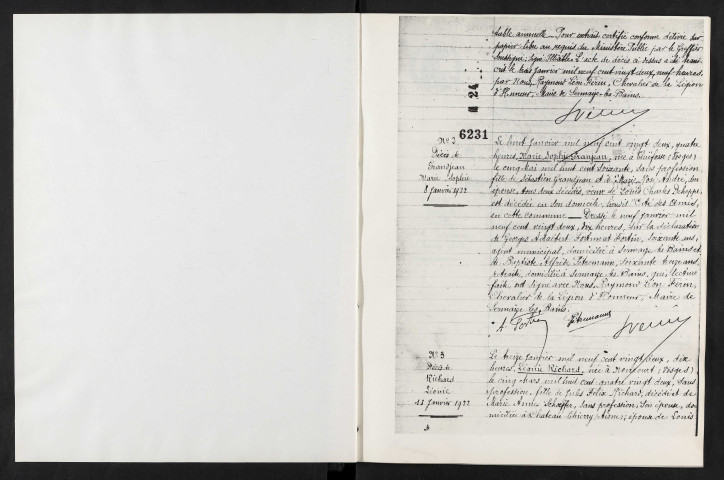 table annuelle. Pour extrait certifié conforme délivré sur
papier libre au requis du Ministère Public par le Greffier
soussigné, signé L'acte de décès ci-dessus a été trans
crit le trois Janvier mil neuf cent vingt deux, neuf heures,
par Nous, Raymond Léon Féron, Chevalier de la Légion
d'Honneur, Maire de Sermaize les Bains.
24
6231
N° 2
Décès de
Grandjean
Marie Sophie
8 Janvier 1922
Le huit Janvier mil neuf cent vingt deux, quatre
heures, Marie Sophie Grandjean, née à (Vosges)
le cinq Mai mil huit cent soixante, sans profession,
fille de Sébastien Grandjean et de André, son
épouse, tous deux décédés, veuve de Louis Charles
est décédée en son domicile, lieudit Cité des Amis,
en cette commune. Dressé le neuf Janvier mil
neuf cent vingt deux, dix heures, sur la déclaration
de Georges Adalbert Fortin, soixante ans,
agent municipal, domicilié à Sermaize les Bains et
de Baptiste Alfred soixante treize ans,
retraité, domicilié à Sermaize les Bains, qui, lecture
faite, ont signé avec Nous, Raymond Léon Féron,
Chevalier de la Légion d'Honneur, Maire de
Sermaize les Bains.
N° 3
Décès de
Richard
Léonie
13 Janvier 1922
Le treize Janvier mil neuf cent vingt deux, dix
heures, Léonie Richard, née à (Vosges)
le cinq Mars mil huit cent quatre vingt deux, sans
profession, fille de Jules Félix Richard, décédé et de
Marie Annie Schoeffer, sans profession, son épouse, do
miciliée à Château Thierry Aisne; épouse de Louis